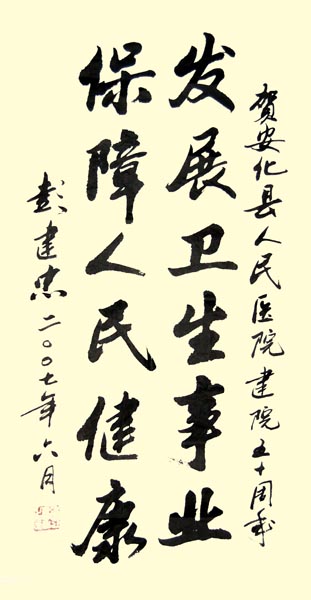 贺安化县人民医院建院五十周年
发展卫生事业
保障人民健康
彭建忠二〇〇七年六月